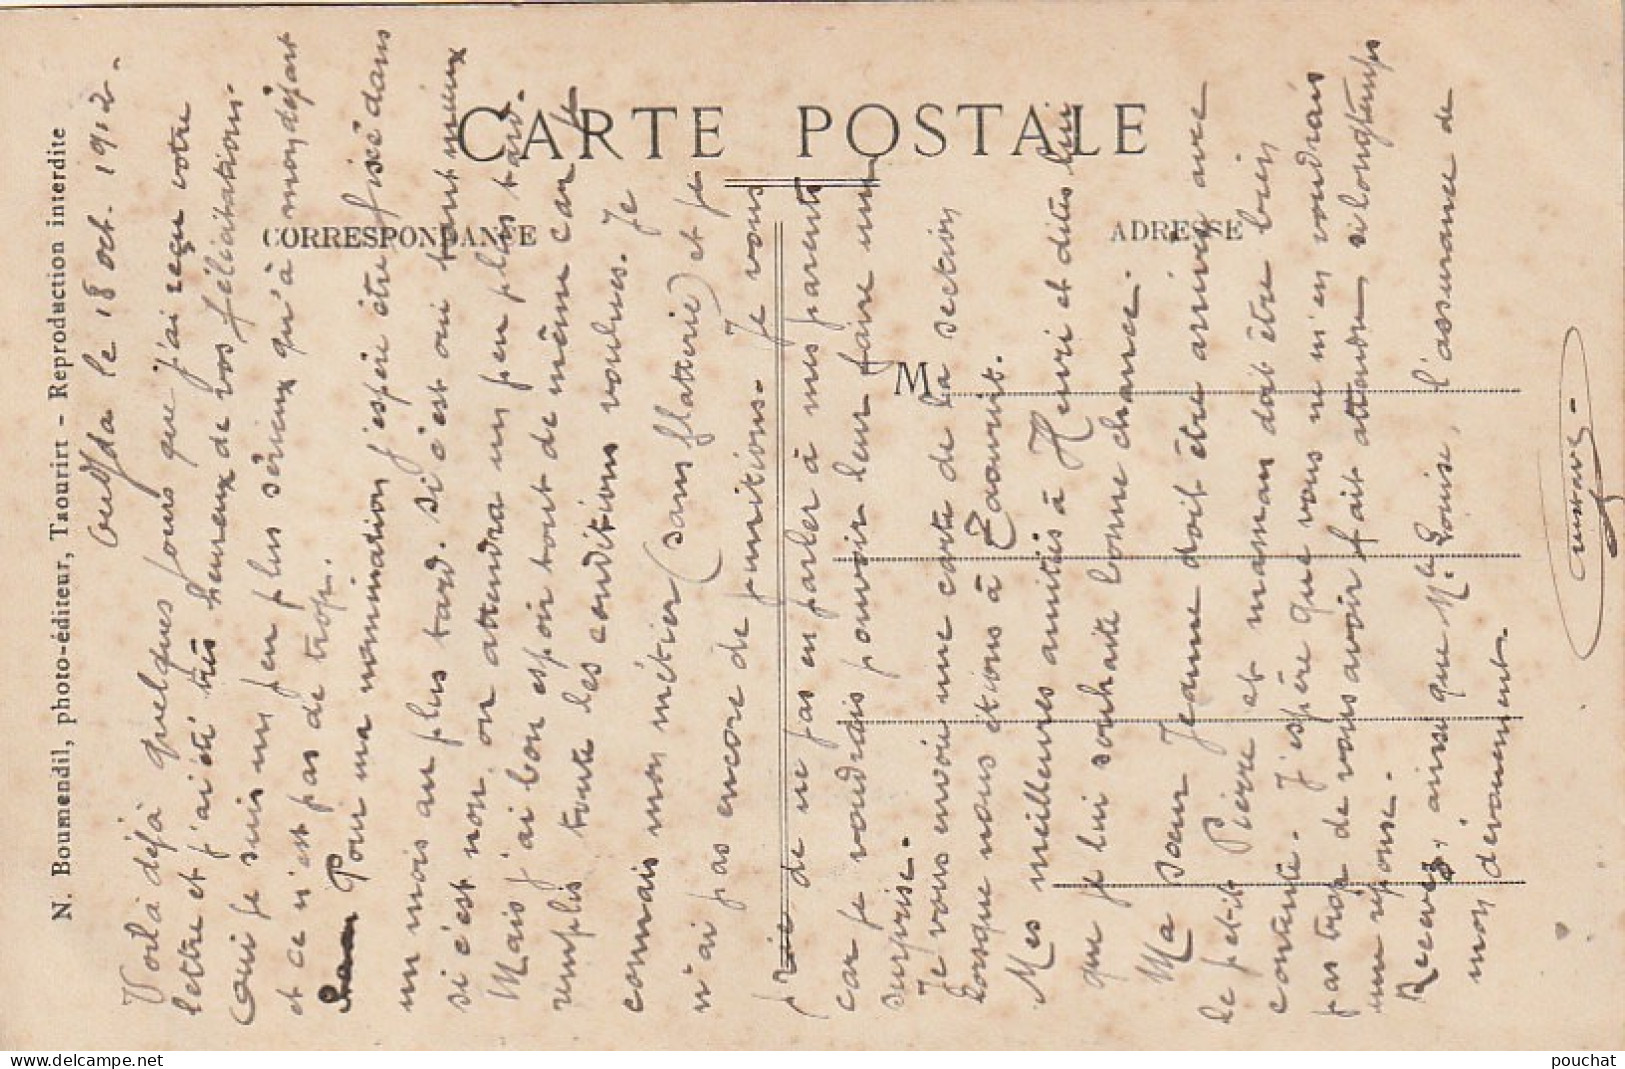 CARTE POSTALE
CORRESPONDANCE
ADRESSE
M
N. Boumendil, photo-éditeur, Taourirt - Reproduction interdite
Oudjda le 18 oct. 1912.
Voilà déjà quelques jours que j'ai reçu votre
lettre et j'ai été très heureux de vos félicitations.
Oui je suis un peu plus sérieux qu'à mon départ
et ce n'est pas de trop.
Pour ma nomination j'espère être fixé dans
un mois au plus tard. si c'est oui tant mieux
si c'est non, on attendra un peu plus tard.
Mais j'ai bon espoir tout de même car je
remplis toute les conditions voulues. Je
connais mon métier (sans flatterie) et je
n'ai pas encore de punitions. Je vous
prie de ne pas en parler à mes parents
car je voudrais pouvoir leur faire une
surprise.
Je vous envoie une carte de la section
lorsque nous étions à Taourirt.
Mes meilleures amitiés à Henri et dites lui
que je lui souhaite bonne chance.
Ma sœur Jeanne doit être arrivée avec
le petit Pierre et maman doit être bien
contente. J'espère que vous ne m'en voudrais
pas trop de vous avoir fait attendre si longtemps
une réponse.
Recevez, ainsi que Mlle Louise, l'assurance de
mon dévouement.
pouchat
delcampe.net